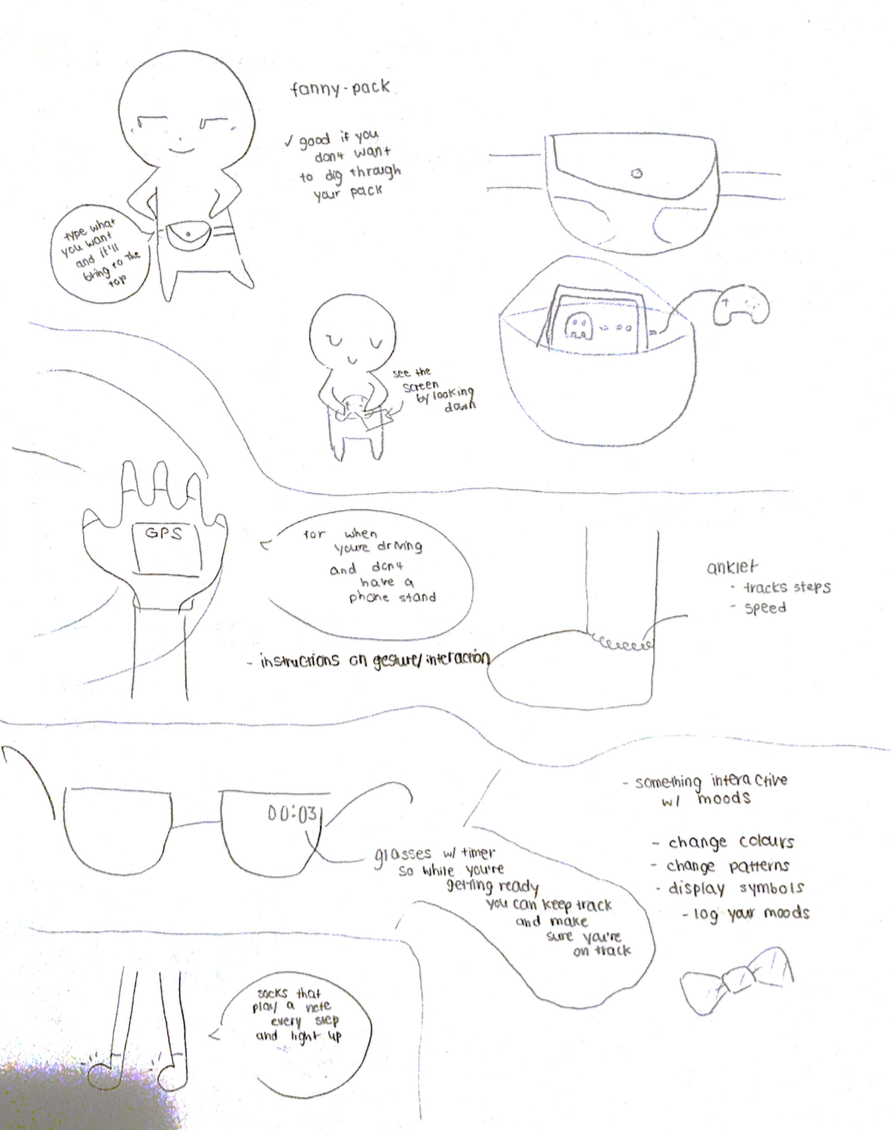 fanny-pack
✓ good if you
don't want
to dig through
your pack
type what
you want
and it'll
bring to the
top
see the
screen
by looking
down
GPS
for when
youre driving
and don't
have a
phone stand
- instructions on gesture/interaction
anklet
- tracks steps
- speed
00:03
glasses w/ timer
so while you're
getting ready
you can keep track
and make
sure you're
on track
- something interactive
w/ moods
- change colours
- change patterns
- display symbols
- log your moods
socks that
play a note
every step
and light up